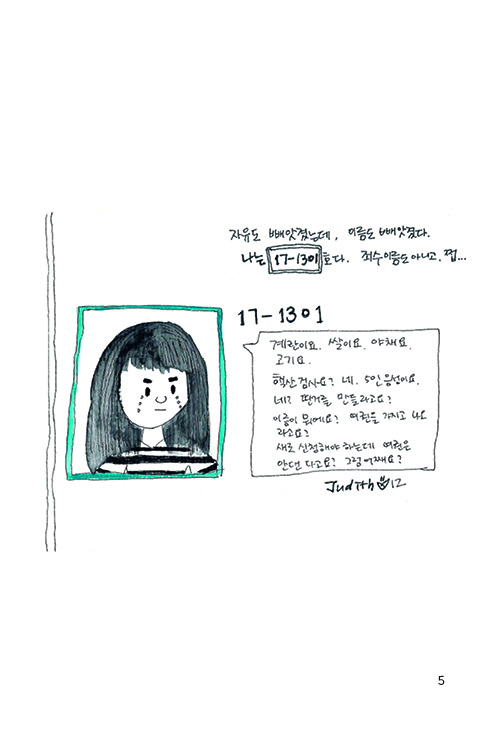 자유도 빼앗겼는데, 이름도 빼앗겼다.
나는 17-1301 호다. 죄수이름도 아니고. 쩝...
17-1301
계란이요. 쌀이요. 야채요.
고기요.
핵산검사요? 네. 5인 음성이요.
네? 딴거를 만들라고요?
이름이 뭐에요? 여권을 가지고 나오
라고요?
새로 신청해야 하는데 여권은
안된 다고요? 그럼 어째요?
Judith 12
5